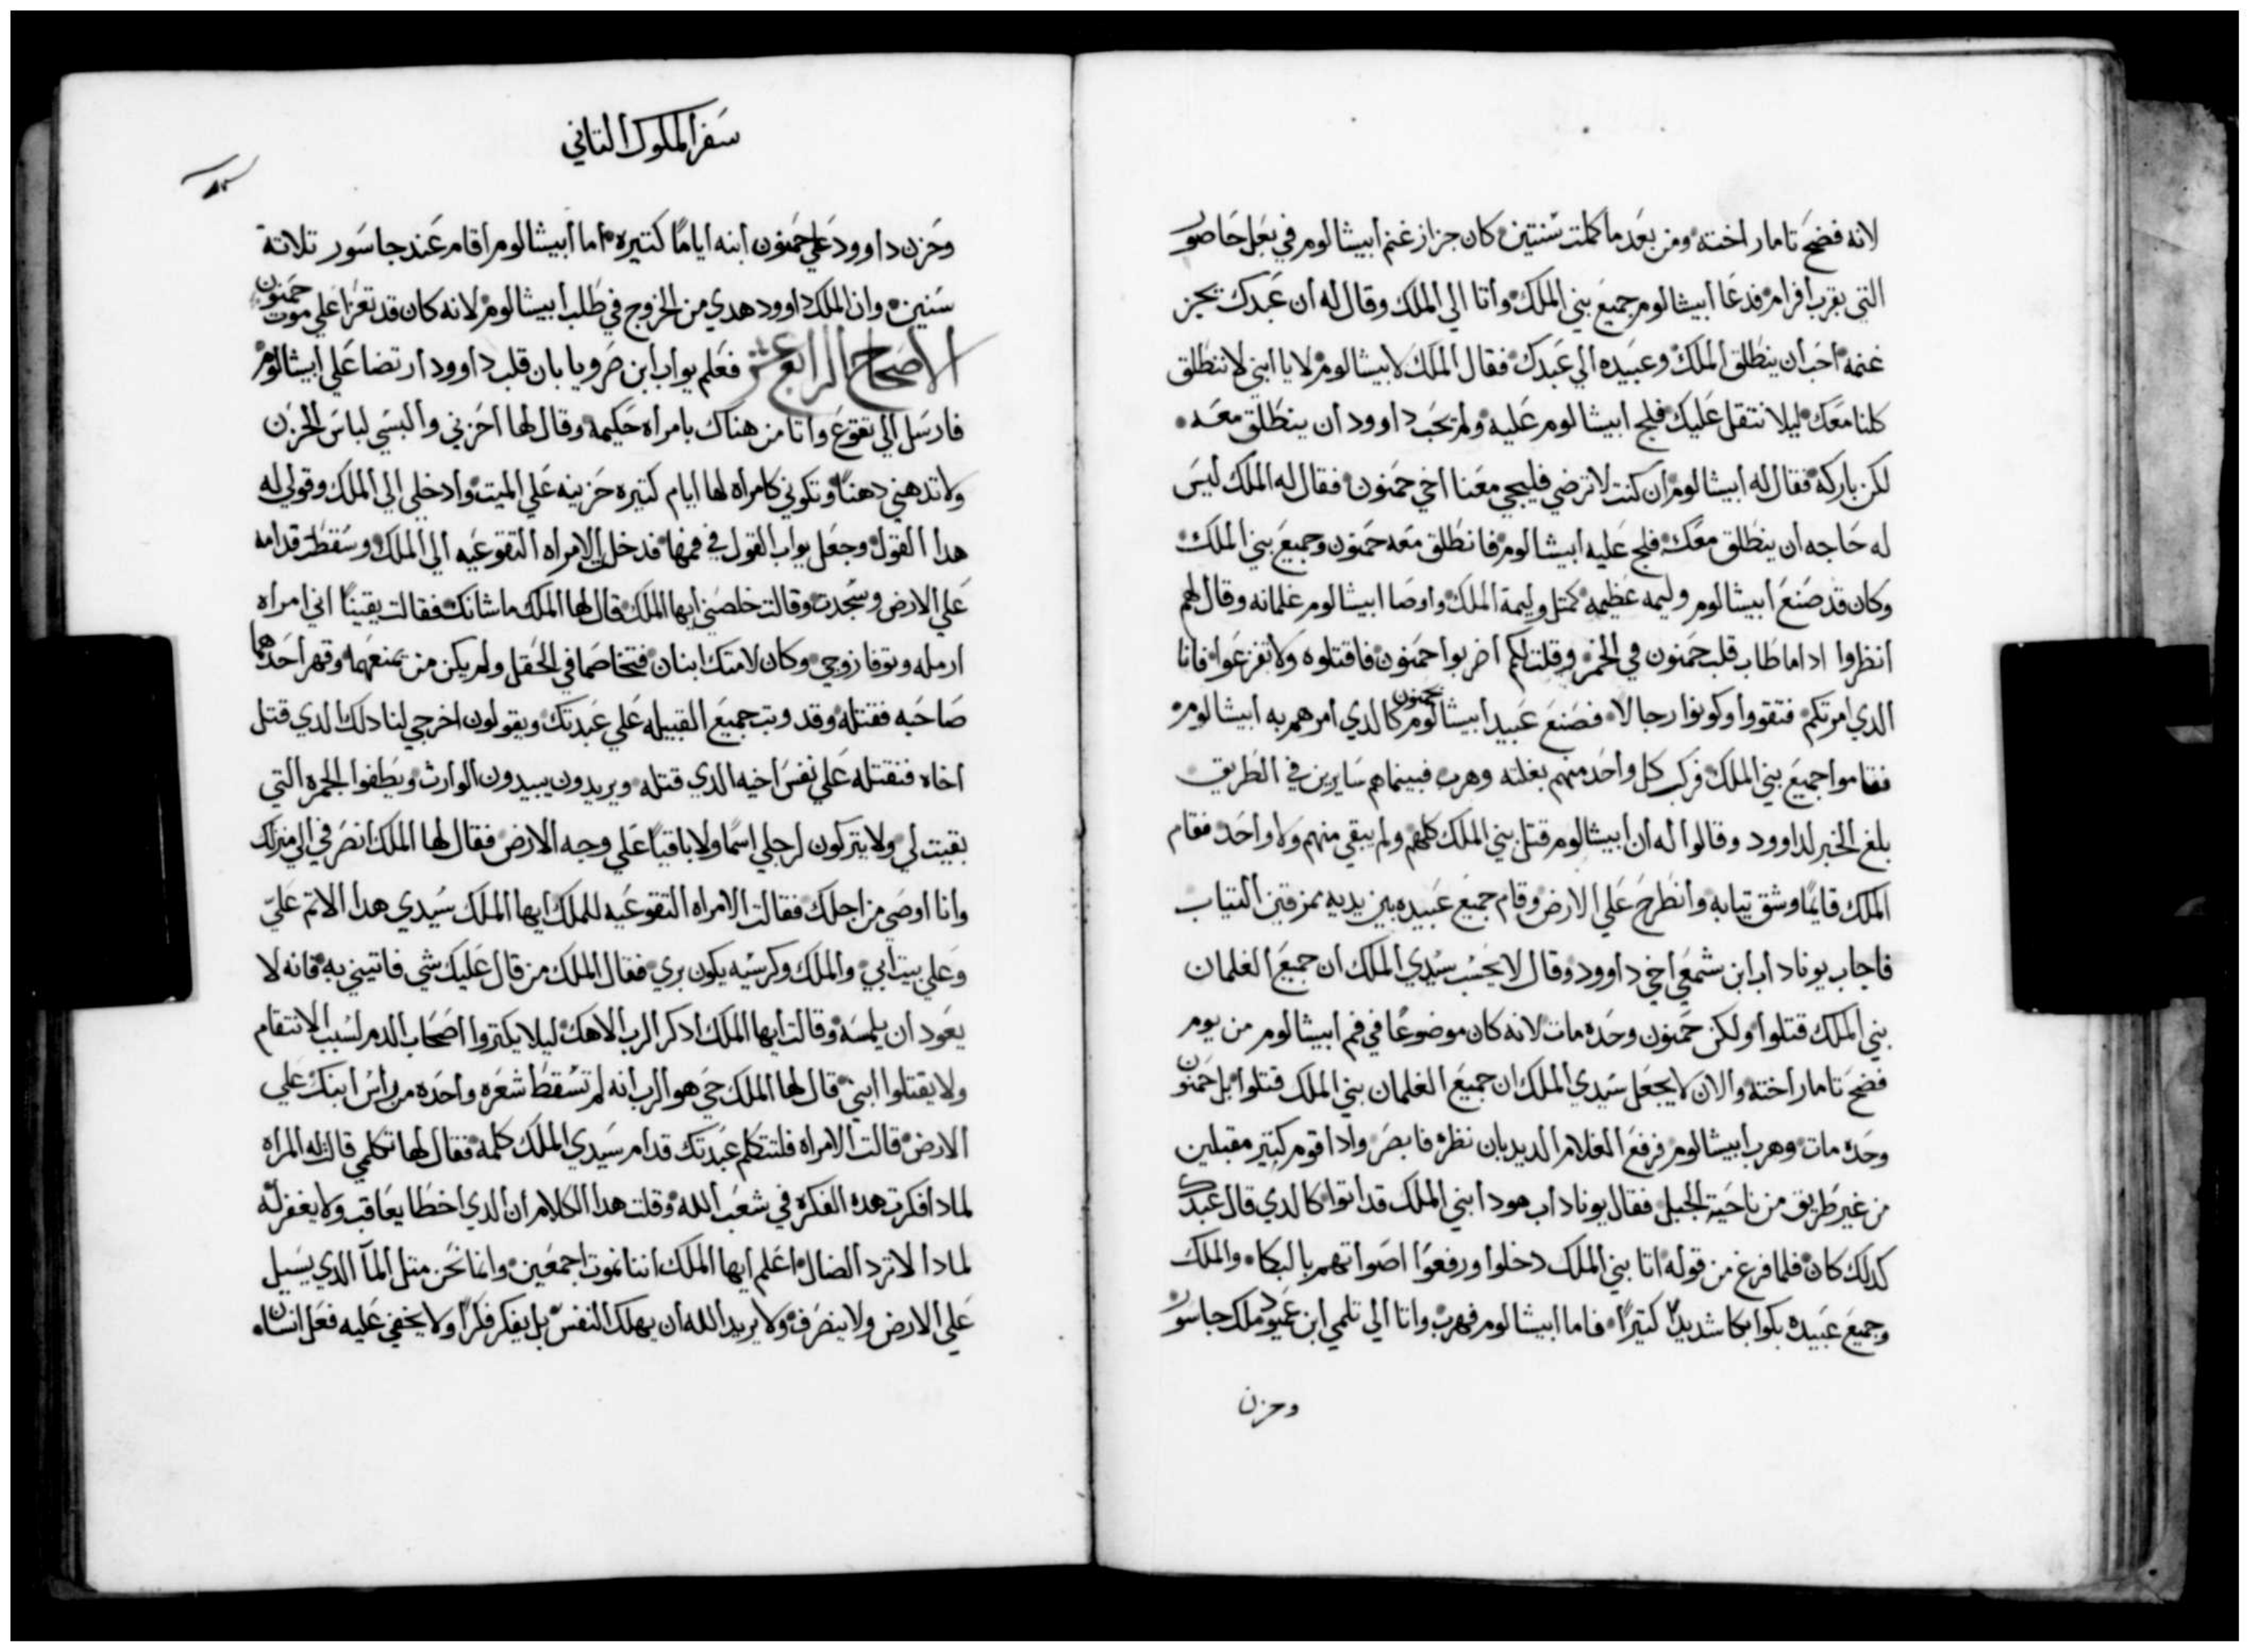 لانه فضح تامار اخته ومن بعد ما كملت سنتين كان جزاز غنم ابيشالوم في بعل حاصور
التي بقرب افرام فدعا ابيشالوم جميع بني الملك واتا الي الملك وقال له ان عبدك يجز
غنمه احب ان ينطلق الملك وعبيده الي عبدك فقال الملك لابيشالوم لا يا ابني لا ننطلق
كلنا معك ليلا نتقل عليك فلج ابيشالوم عليه ولم يحب داوود ان ينطلق معه
لكن باركه فقال له ابيشالوم ان كنت لا ترضي فليجي معنا اخي حمنون فقال له الملك ليس
له حاجه ان ينطلق معك فلج عليه ابيشالوم فانطلق معه حمنون وجميع بني الملك
وكان قد صنع ابيشالوم وليمه عظيمه كمتل وليمة الملك واوصا ابيشالوم غلمانه وقال لهم
انظروا ادا ما طاب قلب حمنون في الخمر وقلت لكم اضربوا حمنون فاقتلوه ولا تفزعوا فانا
الدي امرتكم فتقووا وكونوا رجالا فصنع عبيد ابيشالوم بحمنون كالدي امرهم به ابيشالوم
فقاموا جميع بني الملك فركب كل واحد منهم بغلته وهرب فبينما هم سايرين في الطريق
بلغ الخبر لداوود وقالوا له ان ابيشالوم قتل بني الملك كلهم ولم يبقي منهم ولا واحد فقام
الملك قايما وشق تيابه وانطرح علي الارض وقام جميع عبيده بين يديه ممزقين التياب
فاجاب يوناداب ابن شمعي اخي داوود وقال لا يحسب سيدي الملك ان جميع الغلمان
بني الملك قتلوا ولكن حمنون وحده مات لانه كان موضوعا في فم ابيشالوم من يوم
فضح تامار اخته والان لا يجعل سيدي الملك ان جميع الغلمان بني الملك قتلوا بل حمنون
وحده مات وهرب ابيشالوم فرفع الغلام الديدبان نظره فابصر وادا قوم كتير مقبلين
من غير طريق من ناحية الجبل فقال يوناداب هودا بني الملك قد اتوا كالدي قال عبدك
كدلك كان فلما فرغ من قوله اتا بني الملك دخلوا ورفعوا اصواتهم بالبكا والملك
وجميع عبيده بكوا بكا شديدا كتيرا فاما ابيشالوم فهرب واتا الي تلمي ابن عميود ملك جاسور
وحزن
سفر الملوك التاني
وحزن داوود علي حمنون ابنه اياما كتيره اما ابيشالوم اقام عند جاسور تلاتة
سنين وان الملك داوود هدي من الخروج في طلب ابيشالوم لانه كان قد تعزا علي موت حمنون
الاصحاح الرابع عشر فعلم يواب ابن صرويا بان قلب داوود ارتضا علي ابيشالوم
فارسل الي تقوع واتا من هناك بامراه حكيمه وقال لها احزني والبسي لباس الحزن
ولا تدهني دهنا وتكوني كامراه لها ايام كتيره حزينه علي الميت وادخلي الي الملك وقولي له
هدا القول وجعل يواب القول في فمها فدخلت الامراه التقوعيه الي الملك وسقطت قدامه
علي الارض وسجدت وقالت خلصني ايها الملك قال لها الملك ما شانك فقالت يقينا اني امراه
ارمله وتوفا زوجي وكان لامتك ابنان فتخاصما في الحقل ولم يكن من يمنعهما وقهر احدهما
صاحبه فقتله وقد وتب جميع القبيله علي عبدتك ويقولون اخرجي لنا دلك الدي قتل
اخاه فنقتله علي نفس اخيه الدي قتله ويريدون يبيدون الوارث ويطفوا الجمره التي
بقيت لي ولا يتركون لرجلي اسما ولا باقيا علي وجه الارض فقال لها الملك انصرفي الي منزلك
وانا اوصي من اجلك فقالت الامراه التقوعيه للملك ايها الملك سيدي هدا الاتم علي
وعلي بيت ابي والملك وكرسيه يكون بري فقال الملك من قال عليك شي فاتيني به فانه لا
يعود ان يلمسه وقالت ايها الملك ادكر الرب الاهك ليلا يكتروا اصحاب الدم لسبب الانتقام
ولا يقتلوا ابني قال لها الملك حي هو الرب انه لم تسقط شعره واحده من راس ابنك علي
الارض قالت الامراه فلتتكلم عبدتك قدام سيدي الملك كلمه فقال لها تكلمي قالت له المراه
لمادا فكرت هده الفكره في شعب الله وقلت هدا الكلام ان الدي اخطا يعاقب ولا يغفر له
لمادا لا ترد الضال اعلم ايها الملك اننا نموت اجمعين وانما نحن متل المآ الدي يسيل
علي الارض ولا ينصرف ولا يريد الله ان يهلك النفس بل يفكر فكرا ولا يخفي عليه فعل انسان